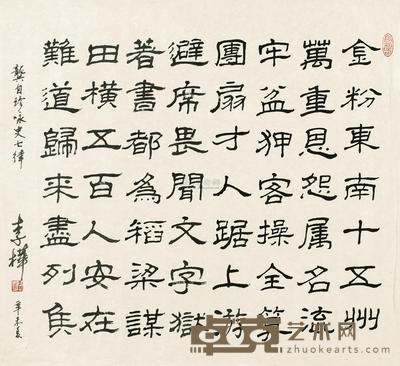 金粉東南十五州
萬重恩怨属名流
牢盆狎客操全算
團扇才人踞上游
避席畏聞文字獄
著書都為稻梁謀
田橫五百人安在
難道歸来盡列矦
龔自珍詠史七律
李樺
辛未夏
卓克艺术网
zhuokearts.com